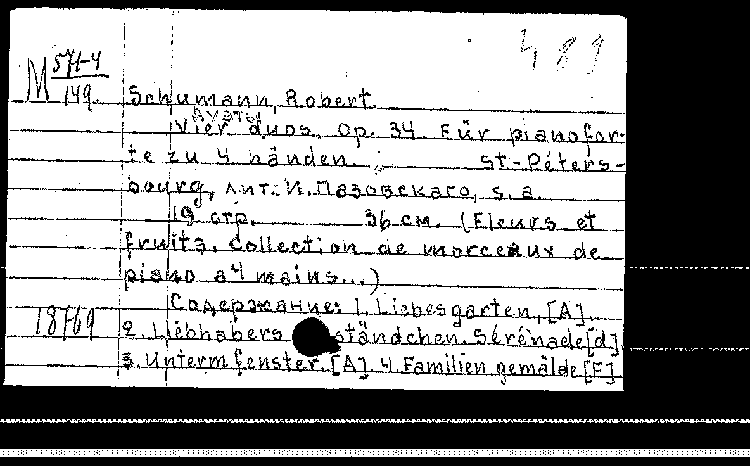 489
M 571-4
149.
Schumann, Robert
Дуэты
Vier duos. Op. 34. Für pianofor-
te zu 4 händen. St-Péters-
bourg, лит. И. Пазовскаго, s. a.
19 стр. 36 см. (Fleurs et
fruits. Collection de morceaux de
piano a 4 mains...)
Содержание: 1. Liebesgarten, [A].
18769
2. Liebhabers ständchen. Sérénade [d]
3. Unterm fenster. [A]. 4. Familien gemälde [F]